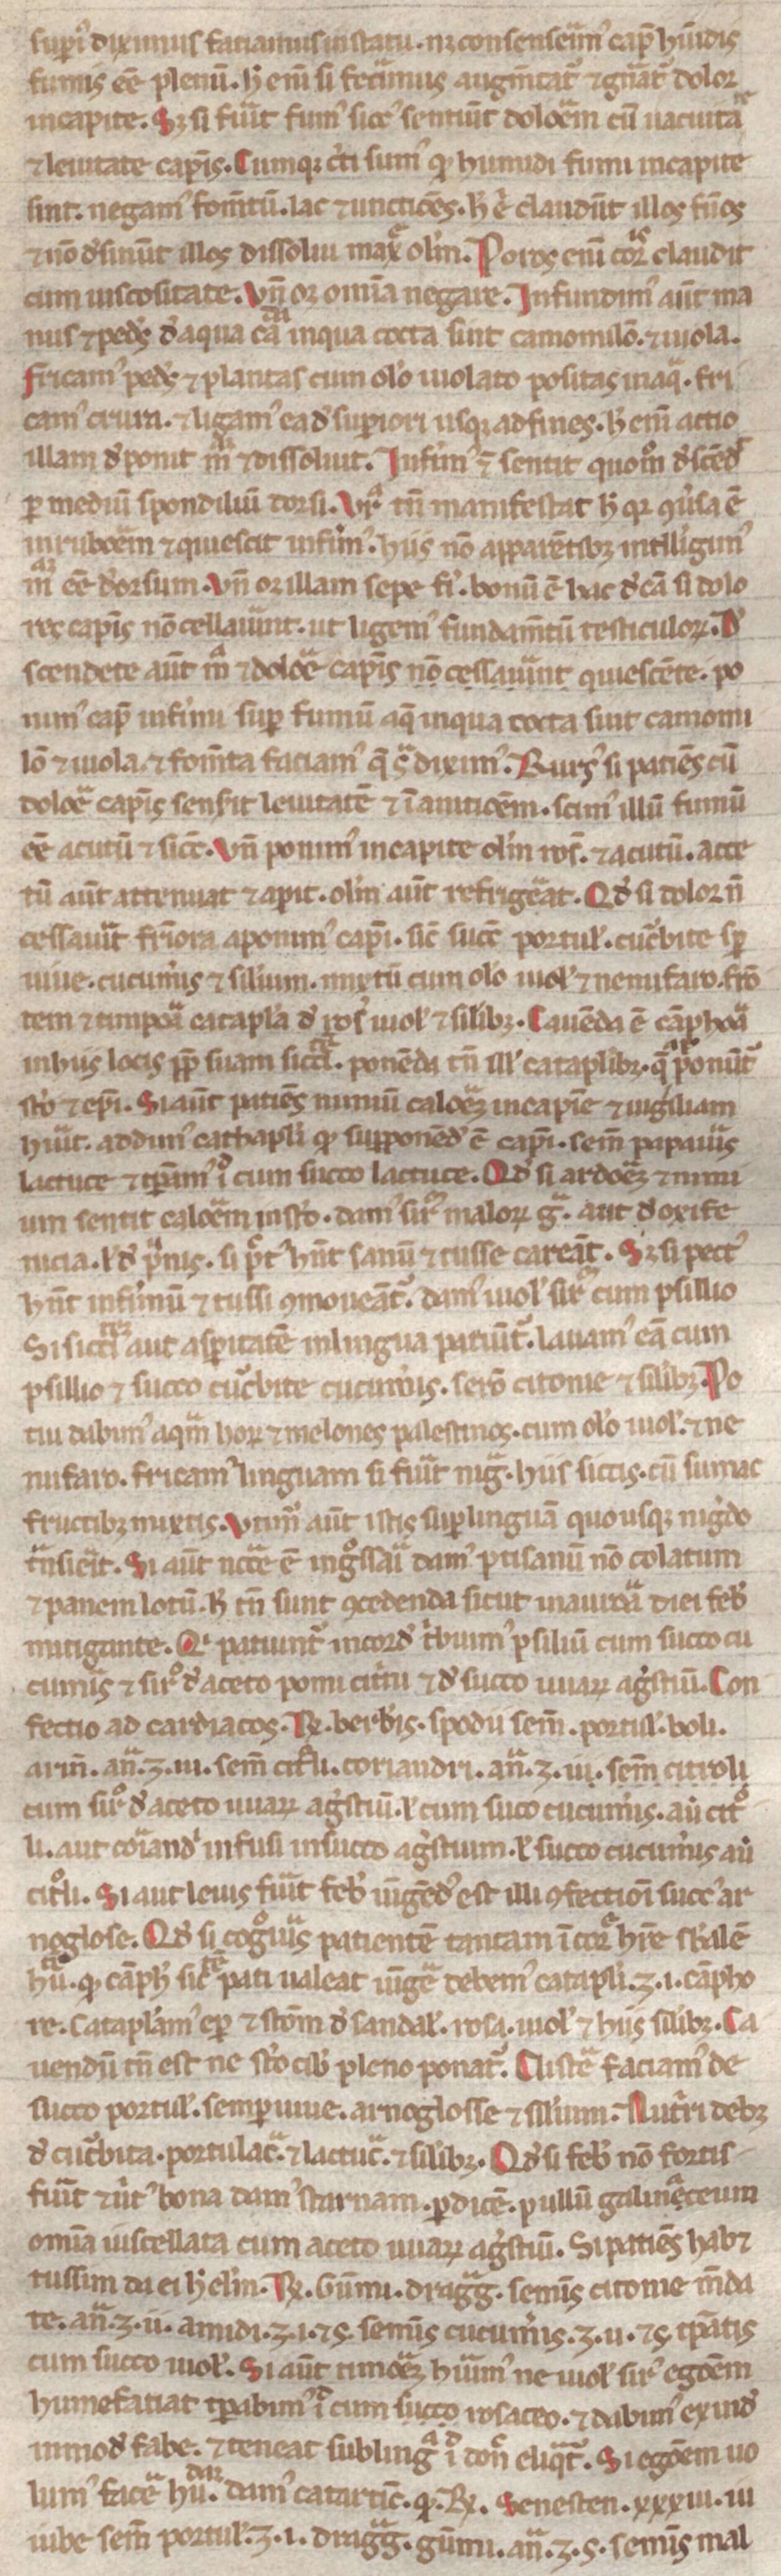 superi diximus faciamus in statu. nȝ consenserim̄ cap̄ humidis
fumis eē plenū. h̄ enī si fecim̄us augm̄tat᷑ ⁊ gn̄at᷑ dolor
in capite. Sȝ si fūit fum᷒ sicc᷒ sentiūt dolorem cū uacuitate
⁊ leuitate capitis. Cumqȝ certi sum᷒ qd humidi fumi in capite
sint. negam᷒ fom̄tū. lac ⁊ unctiōes. h̄ ē claudūt illos fūos
⁊ nō desinūt illos dissolui maxe oleum. Poros enī corpis claudit
cum uiscositate. Vn̄ oȝ omīa negare. Infundim᷒ aūt ma
nus ⁊ pedes d̄ aqua calida in qua cocta sint camomilō. ⁊ uiola.
fricam᷒ pedes ⁊ plantas cum oleo uiolato positas in aqua. fri
cam᷒ crura. ⁊ ligam᷒ ea d̄ superiori usqȝ ad fines. h̄ enī actio
illam d̄ponit mā ⁊ dissoluit. Infirm᷒ ē sentit quom̄o descēd᷑
per mediū spondiliū dorsi. Vr̄ tn̄ manifestat h̄ qȝ u̓sa ē
in ruborem ⁊ quiescit infirm᷒. hiis nō apparētibȝ intelligim᷒
mā eē deorsum. Vn̄ oȝ illam sepe fi᷑. bonū ē hac d̄ cā si dolo
res capitis nō cessauerint. ut ligem᷒ fundam̄tū testiculoȝ. De
scendete aūt mā ⁊ dolore capitis nō cessauerint quiescēte. po
nim᷒ cap̄ infirmi super fumū aque in qua cocta sint camomi
lō ⁊ uiola. ⁊ fom̄ta faciam᷒ que sup̄ dixim᷒. Rursus si patiēs cū
dolore capitis sensit leuitatē ⁊ ianiticōem. scim᷒ illū fumū
eē acutū ⁊ siccū. Vn̄ ponim᷒ in capite oleum ros̄. ⁊ acutū. ace
tū aūt attenuat ⁊ aperit. oleum aūt refrigerat. Qd si dolor n̄
cessauerit frigidiora aponim᷒ capiti. sic̄ succ᷒ portul᷒. cucurbite semper
uiue. cucumeris ⁊ silium. mixtū cum oleo uiol᷒ ⁊ nenufaro. frō
tem ⁊ timpora catapla᷒ d̄ ros̄ uiol᷒ ⁊ silibȝ. Cauēda ē cāphora
in hiis locis ppt̄ suam siccitatē. ponēda tn̄ ill᷒ cataplibȝ. que pponūt᷑
sto ⁊ epi. Si aūt patiēs nimiū calorem in capite ⁊ uigiliam
hūit. addim᷒ cathapli qd supponēd᷒ ē capiti. sem̄ papaueris
lactuce ⁊ tp̄am᷒ id cum succo lactuce. Qd si ardorem ⁊ nimi
um sentit calorem in sto. dam᷒ sir᷒ maloȝ gᵃ. aut d̄ oxife
nicia. l̓ d̄ prunis. si pect᷒ hn̄t sanū ⁊ tusse careāt. Sȝ si pect᷒
hn̄t infirmū ⁊ tussi ↄmoueāt᷑. dam᷒ uiol᷒ sir᷒ cum psillio
Si siccitatē aut asperitatē in lingua patiūt᷑. lauam᷒ eā cum
psillio ⁊ succo cucurbite cucumeris. serō citonie ⁊ silibȝ. Po
tui dabim᷒ aquā hoȝ ⁊ melones palestinos. cum oleo uiol᷒. ⁊ ne
nufaro. fricam᷒ linguam si fūit nigra. hiis siccis. cū sumac
fructibȝ mixtis. Vtim᷒ aūt istis super linguā quousqȝ nigredo
transierit. Si aūt nc̄ce ē ingrossari dam᷒ ptisanū nō colatum
⁊ panem lotū. h̄ tn̄ sunt ↄcedenda sicut in aurora diei feb᷒
mitigante. Qd patiunt᷑ in cord᷒ tribuim᷒ psiliū cum succo cu
cumeris ⁊ sir᷒ d̄ aceto pomi citrini ⁊ d̄ succo uuaȝ agrestiū. Con
fectio ad cardiacos. R̸. berbis. spodii sem̄. portul᷒. boli.
arm̄. an̄a. ʒ. iii. sem̄ citroli. coriandri. an̄a. ʒ. iii. sem̄ citroli
cum sir᷒ d̄ aceto uuaȝ agrestiū. l̓ cum suco cucumeris. aut citro
li. aut coriand᷒ infusi in succo agrestium. l̓ succo cucumeris aut
citroli. Si aut leuis fūit feb᷒ iungēd᷒ est illi ↄfectioni succ᷒ ar
noglose. Qd si cognoueris patientē tantam in corpe hr̄e
hu᷒. qd cāph᷒ pati ualeat iungere debem᷒ catapli. ʒ. i. cāpho
re. Cataplam᷒ epar ⁊ stom̄ d̄ sandal᷒. rosa. uiol᷒ ⁊ hiis silibȝ. Ca
uendū tn̄ est ne sto cib᷒ pleno ponat᷑. Clistere faciam᷒ de
succo portul᷒. semperuiue. arnoglosse ⁊ silium. Nutriri debȝ
d̄ cucurbita. portulaca. ⁊ lactuca. ⁊ silibȝ. Qd si feb᷒ nō fortis
fūit ⁊ uirt᷒ bona dam᷒ starnam. perdicē. pullū galinaceum
omīa uiscellata cum aceto uuaȝ agrestiū. Si patiēs habet
tussim da ei h̄ elm̄. R̸. Gūmi. dragg. seminis citonie mūda
te. an̄a. ʒ. ii. amidi. ʒ. i. ⁊ s. seminis cucumeris. ʒ. ii. ⁊ s. tp̄atis
cum succo uiol᷒. Si aūt timorem hūim᷒ ne uiol᷒ sir᷒ egōem
humefatiat tp̄abim᷒ id cum succo rosaceo. ⁊ dabim᷒ exind᷒
in mod᷒ fabe. ⁊ teneat sub lingua id don̄ eliqt᷑. Si egōem uo
lum᷒ facere hu᷒. dam᷒ catartic̄. qd. R̸. Senesten. xxxiii. iu
iube sem̄ portul᷒. ʒ. i. dragg. gūmi. an̄a. ʒ. s. seminis mal